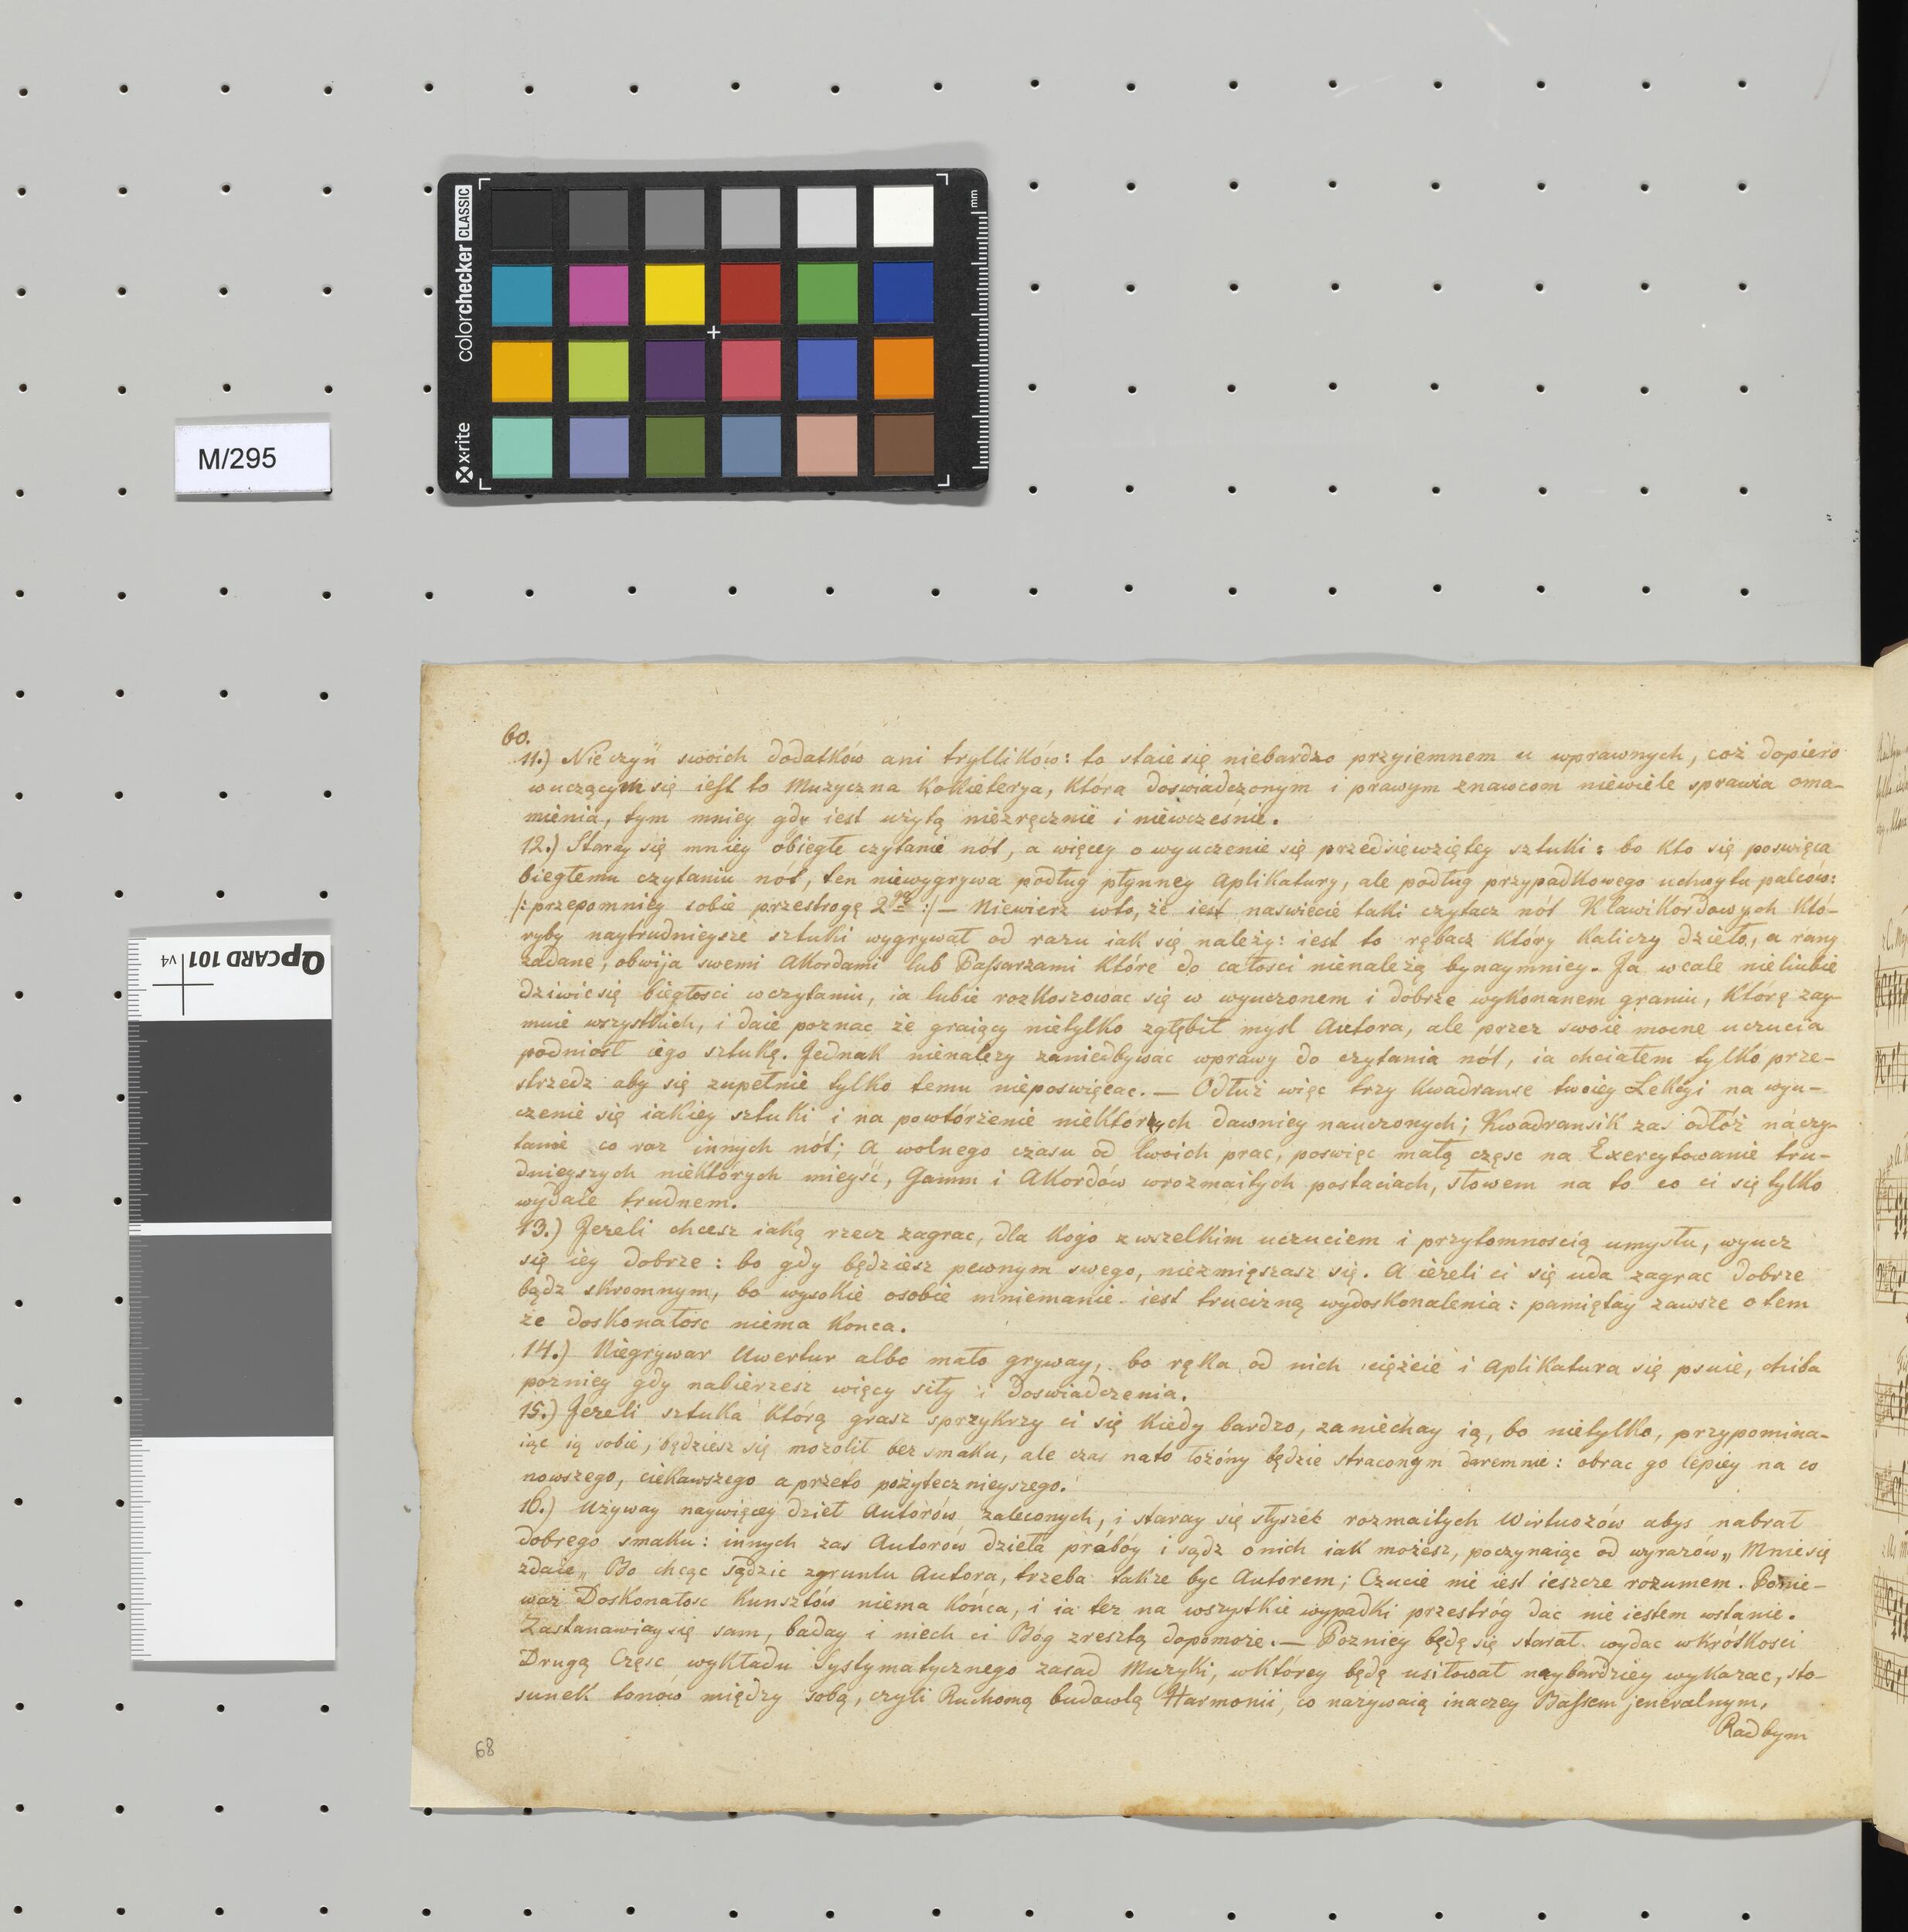 colorchecker CLASSIC
x-rite
mm
M/295
QPCARD 101 v4
60.
11.) Nieczyń swoich dodatków ani tryllików: to staie się niebardzo przyiemnem u wprawnych, coż dopiero
wuczącym się iest to Muzyczna Kokieterya, która doswiadczonym i prawym znawcom niewiele sprawia oma-
mienia, tym mniey gdy iest użytą niezręcznie i niewcześnie.
12.) Staray się mniey obiegłe czytanie nót, a więcey o wyuczenie się przedsięwziętey sztuki: bo kto się poswięca
biegłemu czytaniu nót, ten niewygrywa podług płynney Aplikatury, ale podług przypadkowego uchwytu palców:
/: przepomniey sobie przestrogę 2gą :/ — Niewierz wto, że iest naswiecie taki czytacz nót Klawikordowych któ-
ryby naytrudnieysze sztuki wygrywał od razu iak się należy: iest to rębacz który kaliczy dzieło, a rany
zadane, obwija swemi Akordami lub Passarzami które do całosci nienależą bynaymniey. Ja wcale nielubie
dziwic się biegłosci wczytaniu, ia lubie rozkoszowac się w wyuczonem i dobrze wykonanem graniu, które zay-
muie wszystkich, i daie poznac że graiący nietylko zgłębił mysl Autora, ale przez swoie mocne uczucia
podniosł iego sztukę. Jednak nienależy zaniedbywac wprawy do czytania nót, ia chciałem tylko prze-
strzedz aby się zupełnie tylko temu nieposwięcac. — Odłuż więc trzy kwadranse twoiey Lekcyi na wyu-
czenie się iakiey sztuki i na powtórzenie niektorych dawniey nauczonych; Kwadransik zas odłóż naczy-
tanie co raz innych nót; A wolnego czasu od twoich prac, poswięc małą częsc na Exercytowanie tru-
dnieyszych niektórych mieysć, Gamm i Akordów wrozmaitych postaciach, słowem na to co ci się tylko
wydaie trudnem.
13.) Jezeli chcesz iaką rzecz zagrac, dla kogo zwszelkim uczuciem i przytomnoscią umysłu, wyucz
się iey dobrze: bo gdy będziesz pewnym swego, niezmięszasz się. A ieżeli ci się uda zagrac dobrze
bądz skromnym, bo wysokie osobie mniemanie iest trucizną wydoskonalenia: pamiętay zawsze otem
że doskonałosc niema konca.
14.) Niegrywar Uwertur albo mało gryway, bo ręka od nich ciężeie i Aplikatura się psuie, chiba
pozniey gdy nabierzesz więcy siły i doswiadczenia.
15.) Jezeli sztuka którą grasz sprzykrzy ci się kiedy bardzo, zaniechay ią, bo nietylko, przypomina-
iąc ią sobie, będziesz się mozolił bez smaku, ale czas nato łożóny będzie straconym daremnie: obrac go lépiéy na co
nowszego, ciekawszego aprzeto pożytecznieyszego.
16.) Używay naywięcey dzieł Autorów zaleconych, i staray się słyszeć rozmaitych Wirtuozów abys nabrał
dobrego smaku: innych zas Autorów dzieła próbóy i sądz onich iak możesz, poczynaiąc od wyrazow „ Mnie się
zdaie „ Bo chcąc sądzic zgruntu Autora, trzeba także byc Autorem; Czucie nie iest ieszcze rozumem. Ponie-
waż Doskonałosc Kunsztów niema końca, i ia tez na wszystkie wypadki przestróg dac nie iestem wstanie.
Zastanawiay się sam, baday i niech ci Bóg zresztą dopomoże. — Pozniey będę się starał wydac wkrótkosci
Drugą Częsc wykładu Systymatycznego zasad Muzyki, wktórey będę usiłował naybardziey wykazac, sto-
sunek tonów między sobą, czyli Ruchomą budowlą Harmonii, co nazywaią inaczey Bassem jeneralnym,
Radbym
68